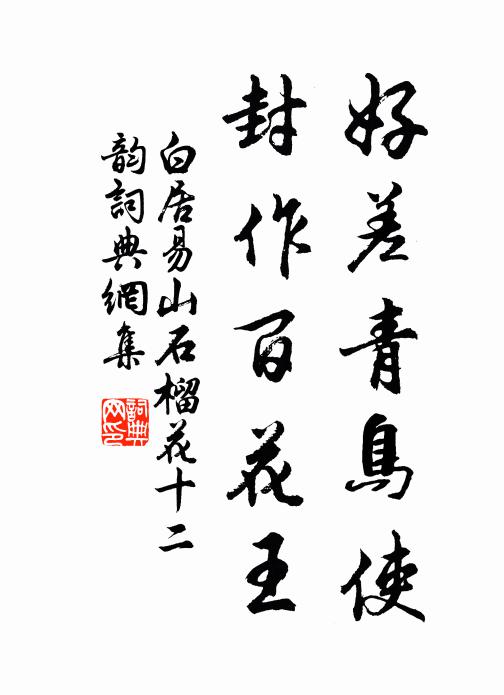 好差青鳥使
封作百花王
白居易山石榴花十二
韵詞典網集
詞典
网印